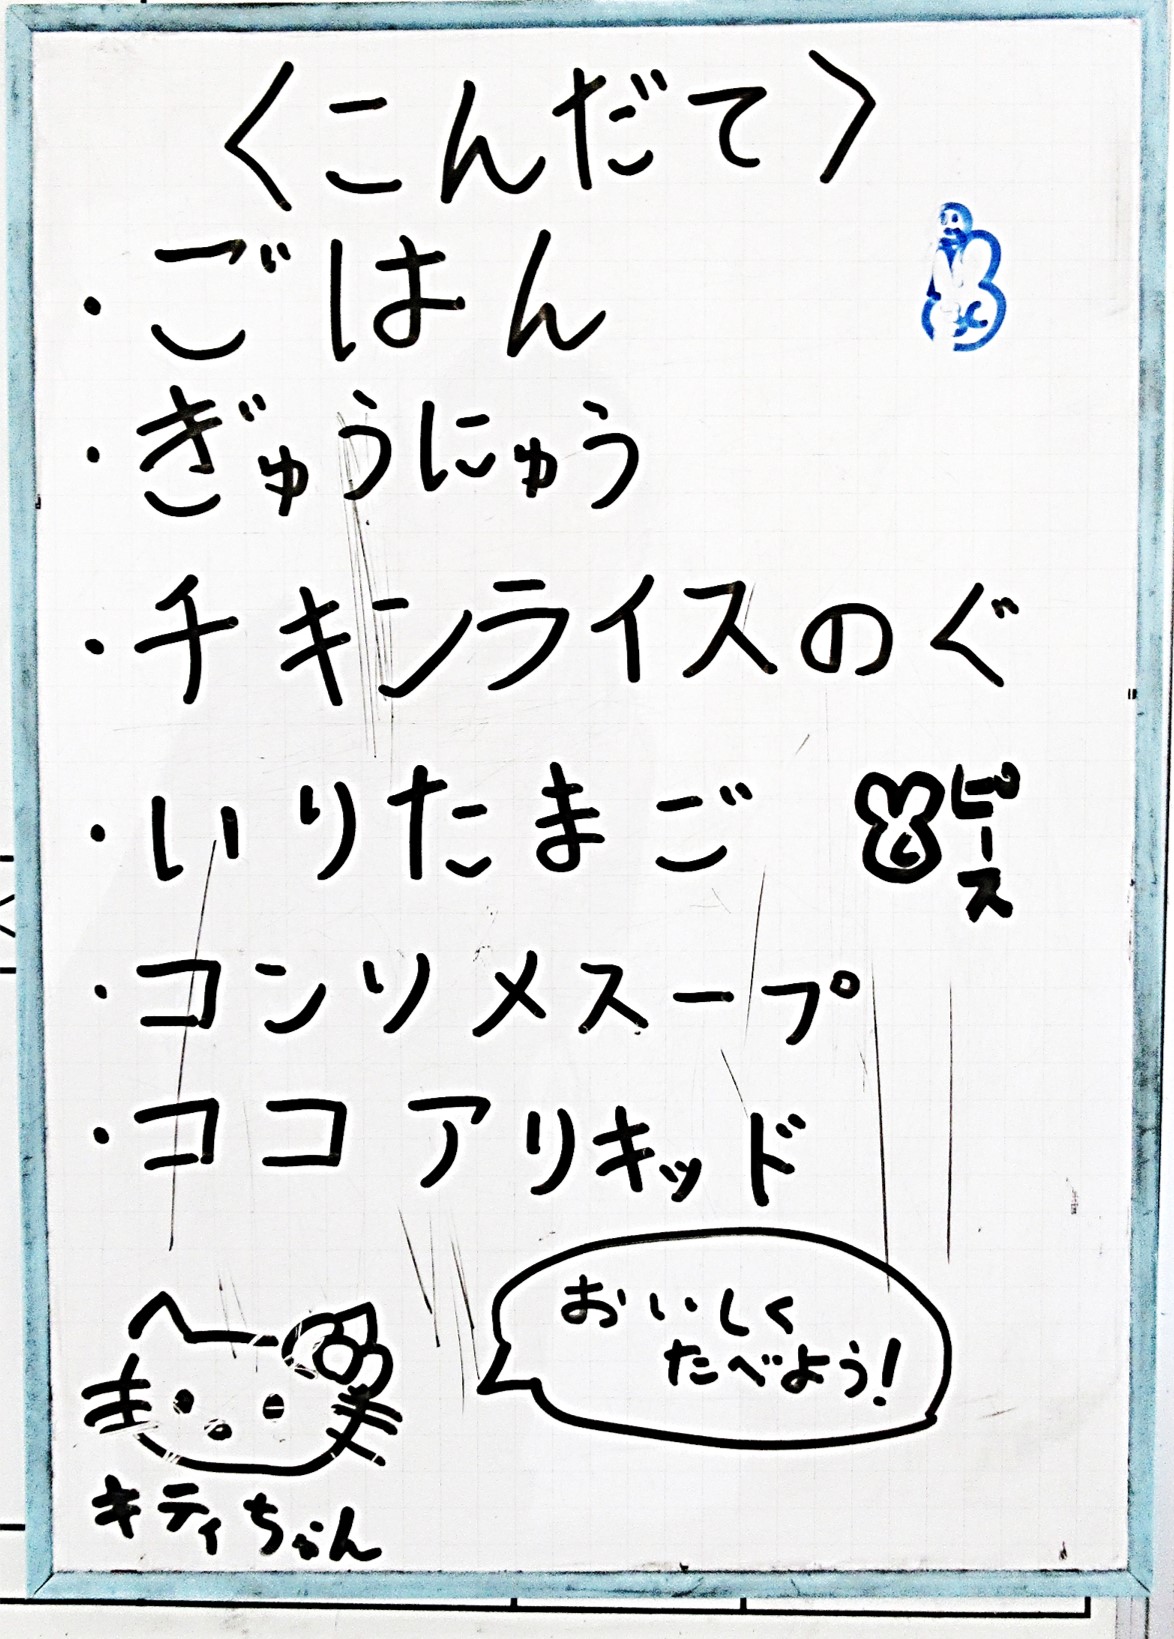 〈こんだて〉
・ごはん
・ぎゅうにゅう
・チキンライスのぐ
・いりたまご
ピース
・コンソメスープ
・ココアリキッド
おいしく
たべよう!
キティちゃん